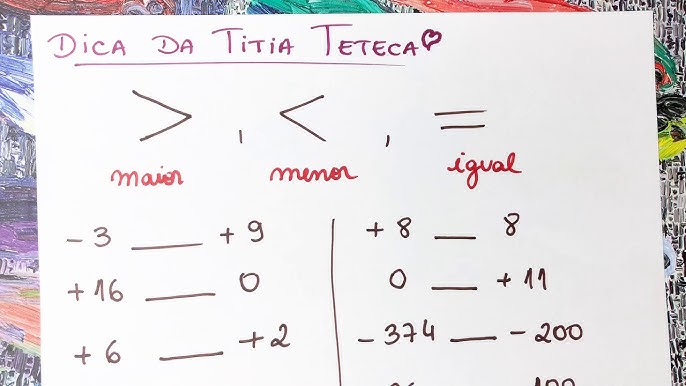 DICA DA TITIA TETECA
> , < , =
maior menor igual
- 3 ___ + 9
+ 16 ___ 0
+ 6 ___ + 2
+ 8 ___ 8
0 ___ + 11
- 374 ___ - 200